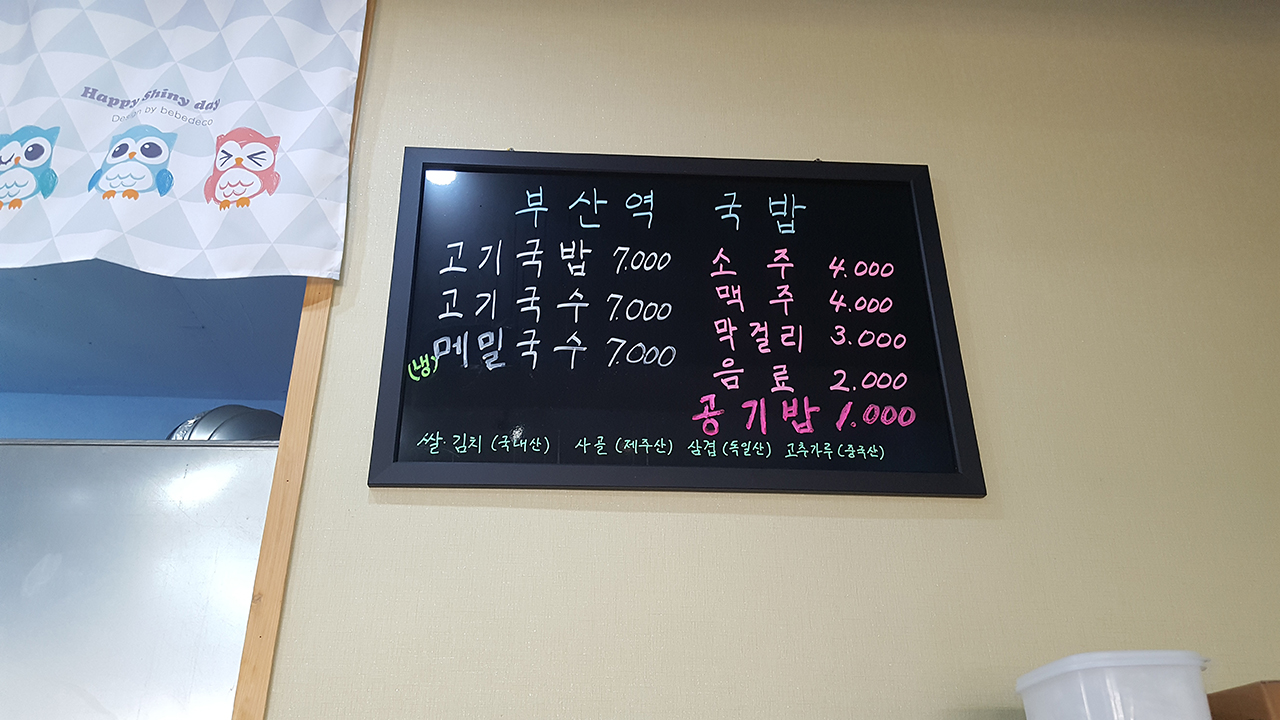 Happy shiny day
Design by bebedeco
부산역 국밥
고기국밥 7.000
고기국수 7.000
(냉) 메밀국수 7.000
소주 4.000
맥주 4.000
막걸리 3.000
음료 2.000
공기밥 1.000
쌀·김치 (국내산) 사골 (제주산) 삼겹 (독일산) 고추가루 (중국산)